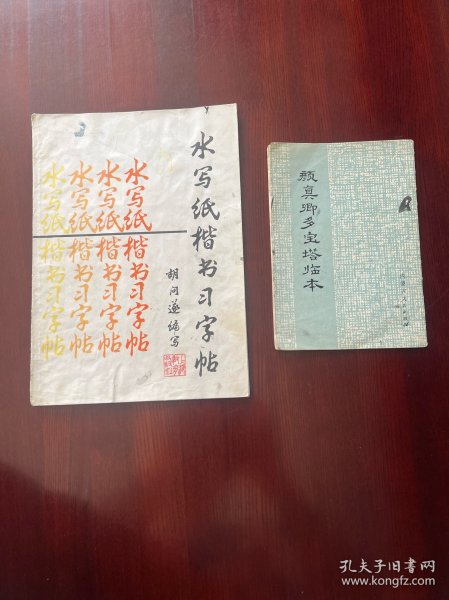 水写纸楷书习字帖
胡问遂编写
水写纸楷书习字帖
水写纸楷书习字帖
水写纸楷书习字帖
水写纸楷书习字帖
颜真卿多宝塔临本
孔夫子旧书网
www.kongfz.com